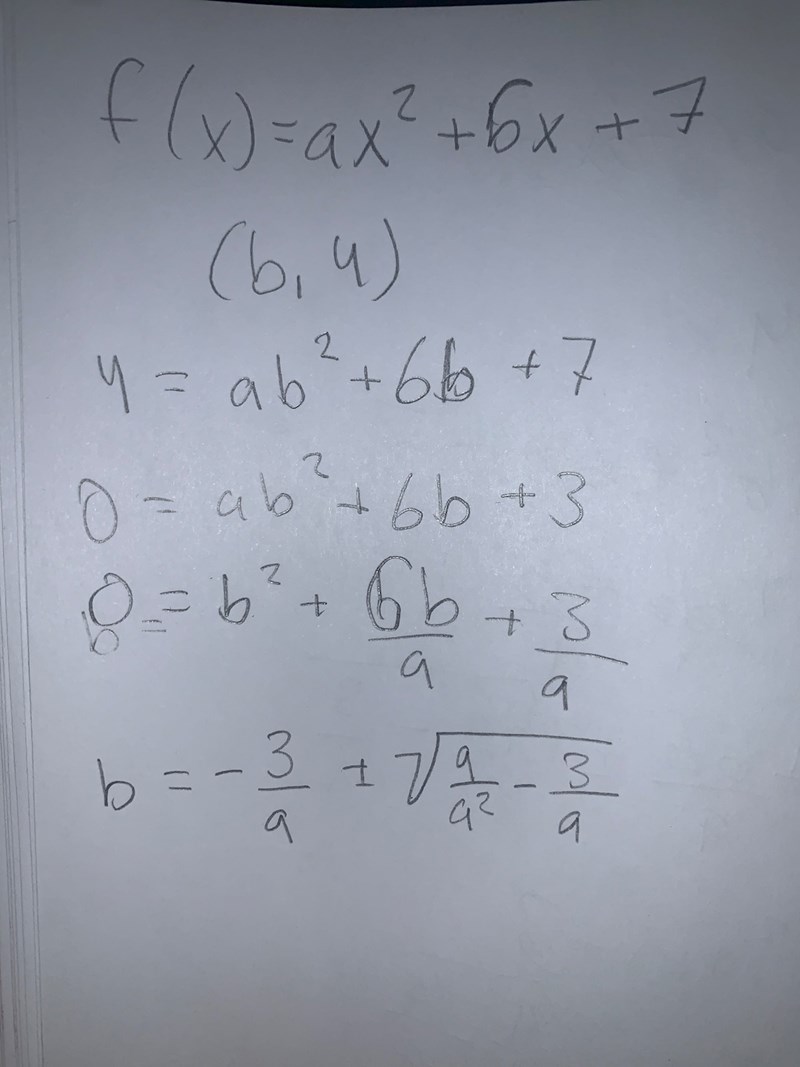 f(x)=ax²+6x+7
(b, 4)
4 = ab²+6b+7
0 = ab²+6b+3
0 = b²+6b/a+3/a
b =
b = -3/a ± √(9/a² - 3/a)